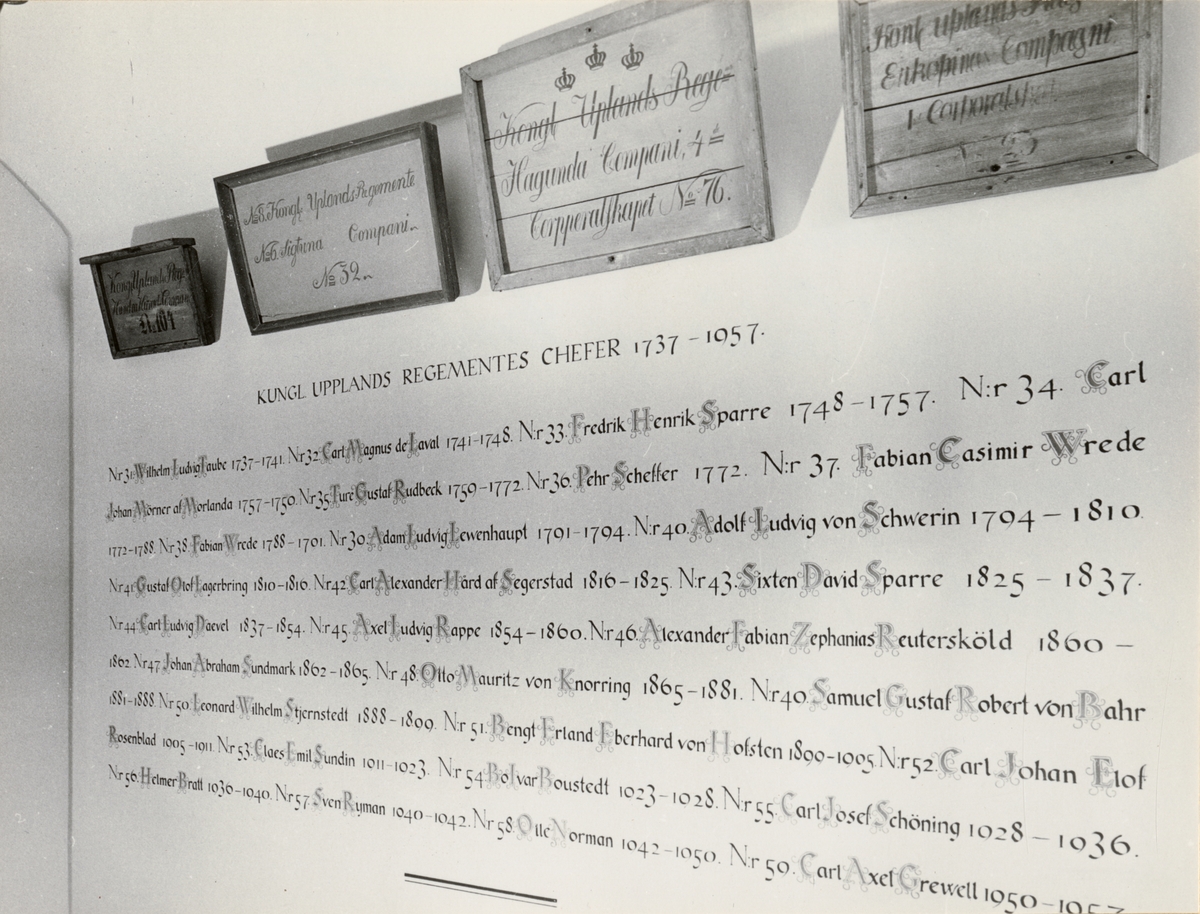 Kongl Uplands Rege
N 104
No 8. Kongl Uplands Regemente
No 6. Sigtuna Compani.
No 32.
Kongl Uplands Rege=
Hagunda Compani, 4=
Corpperalskapet No 76.
Kongl Uplands Reg
Enkopings Compagni
1 Corporalskap
2
KUNGL UPPLANDS REGEMENTES CHEFER 1737 – 1957.
Nr 31. Wilhelm Ludvig Taube 1737–1741. Nr 32. Carl Magnus de Laval 1741–1748. N:r 33. Fredrik Henrik Sparre 1748–1757. N:r 34. Carl
Johan Mörner af Morlanda 1757–1759. Nr 35. Ture Gustaf Rudbeck 1759–1772. N:r 36. Pehr Scheffer 1772. N:r 37. Fabian Casimir Wrede
1772–1788. Nr 38. Fabian Wrede 1788–1791. Nr 39. Adam Ludvig Lewenhaupt 1791–1794. N:r 40. Adolf Ludvig von Schwerin 1794 – 1810.
Nr 41. Gustaf Olof Lagerbring 1810–1816. Nr 42. Carl Alexander Hård af Segerstad 1816–1825. N:r 43. Sixten David Sparre 1825 – 1837.
Nr 44. Carl Ludvig Daevel 1837–1854. N:r 45. Axel Ludvig Rappe 1854–1860. N:r 46. Alexander Fabian Zephanias Reutersköld 1860 –
1862. Nr 47. Johan Abraham Sundmark 1862–1865. N:r 48. Otto Mauritz von Knorring 1865–1881. N:r 49. Samuel Gustaf Robert von Bahr
1881–1888. Nr 50. Leonard Wilhelm Stjernstedt 1888–1899. N:r 51. Bengt Erland Eberhard von Hofsten 1899–1905. N:r 52. Carl Johan Elof
Rosenblad 1905–1911. Nr 53. Claes Emil Sundin 1911–1923. N:r 54. Bo Ivar Boustedt 1923–1928. N:r 55. Carl Josef Schöning 1928 – 1936.
Nr 56. Helmer Bratt 1936–1940. Nr 57. Sven Ryman 1940–1942. N:r 58. Olle Norman 1942–1950. N:r 59. Carl Axel Grewell 1950–1957